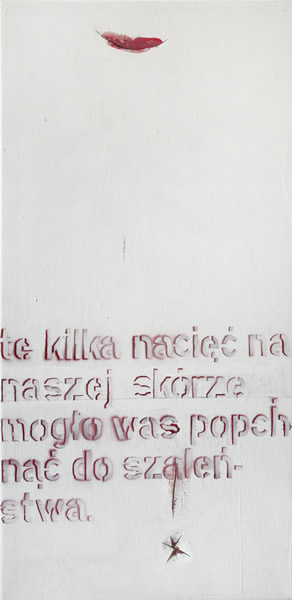 te kilka nacięć na
naszej skórze
mogło was popch
nąć do szaleń-
stwa.